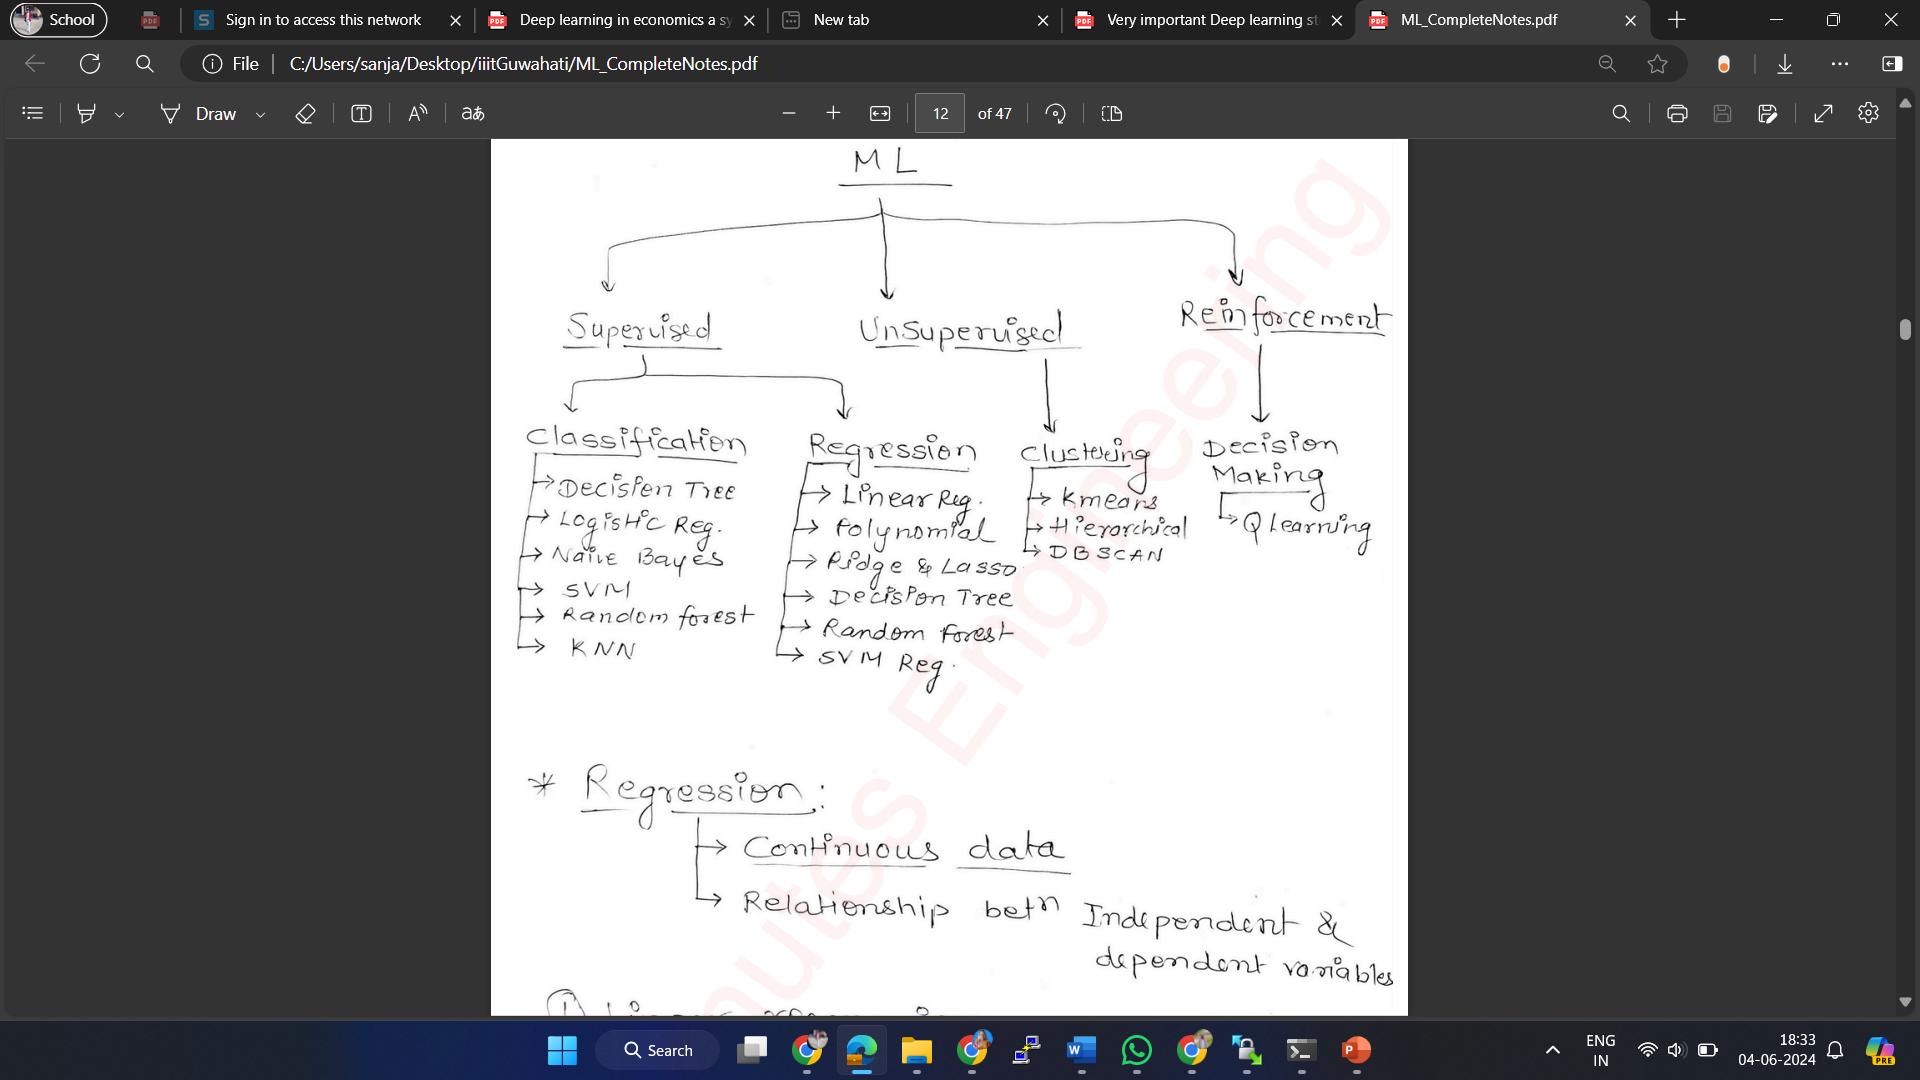 School
Sign in to access this network
Deep learning in economics a sy
New tab
Very important Deep learning st
ML_CompleteNotes.pdf
File
C:/Users/sanja/Desktop/iiitGuwahati/ML_CompleteNotes.pdf
Draw
12 of 47
ML
Supervised
Unsupervised
Reinforcement
Classification
Decision Tree
Logistic Reg.
Naive Bayes
SVM
Random forest
KNN
Regression
Linear Reg.
Polynomial
Ridge & Lasso
Decision Tree
Random Forest
SVM Reg.
Clustering
Kmeans
Hierarchical
DBSCAN
Decision
Making
Q Learning
* Regression:
Continuous data
Relationship betn Independent &
dependent variables
utes Engineering
Search
ENG
IN
18:33
04-06-2024
PRE